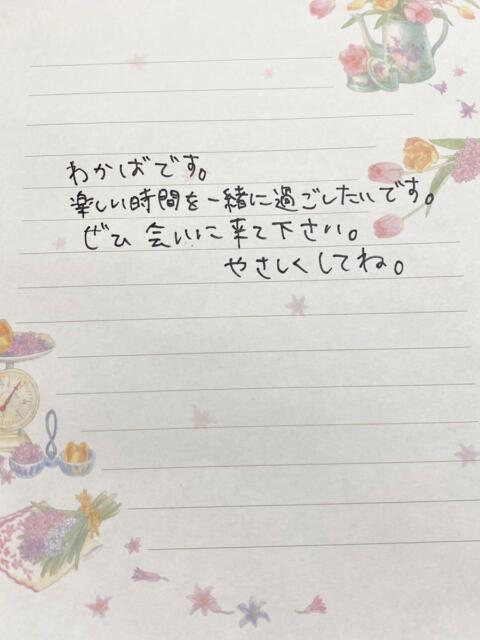 わかばです。
楽しい時間を一緒に過ごしたいです。
ぜひ会いに来て下さい。
やさしくしてね。